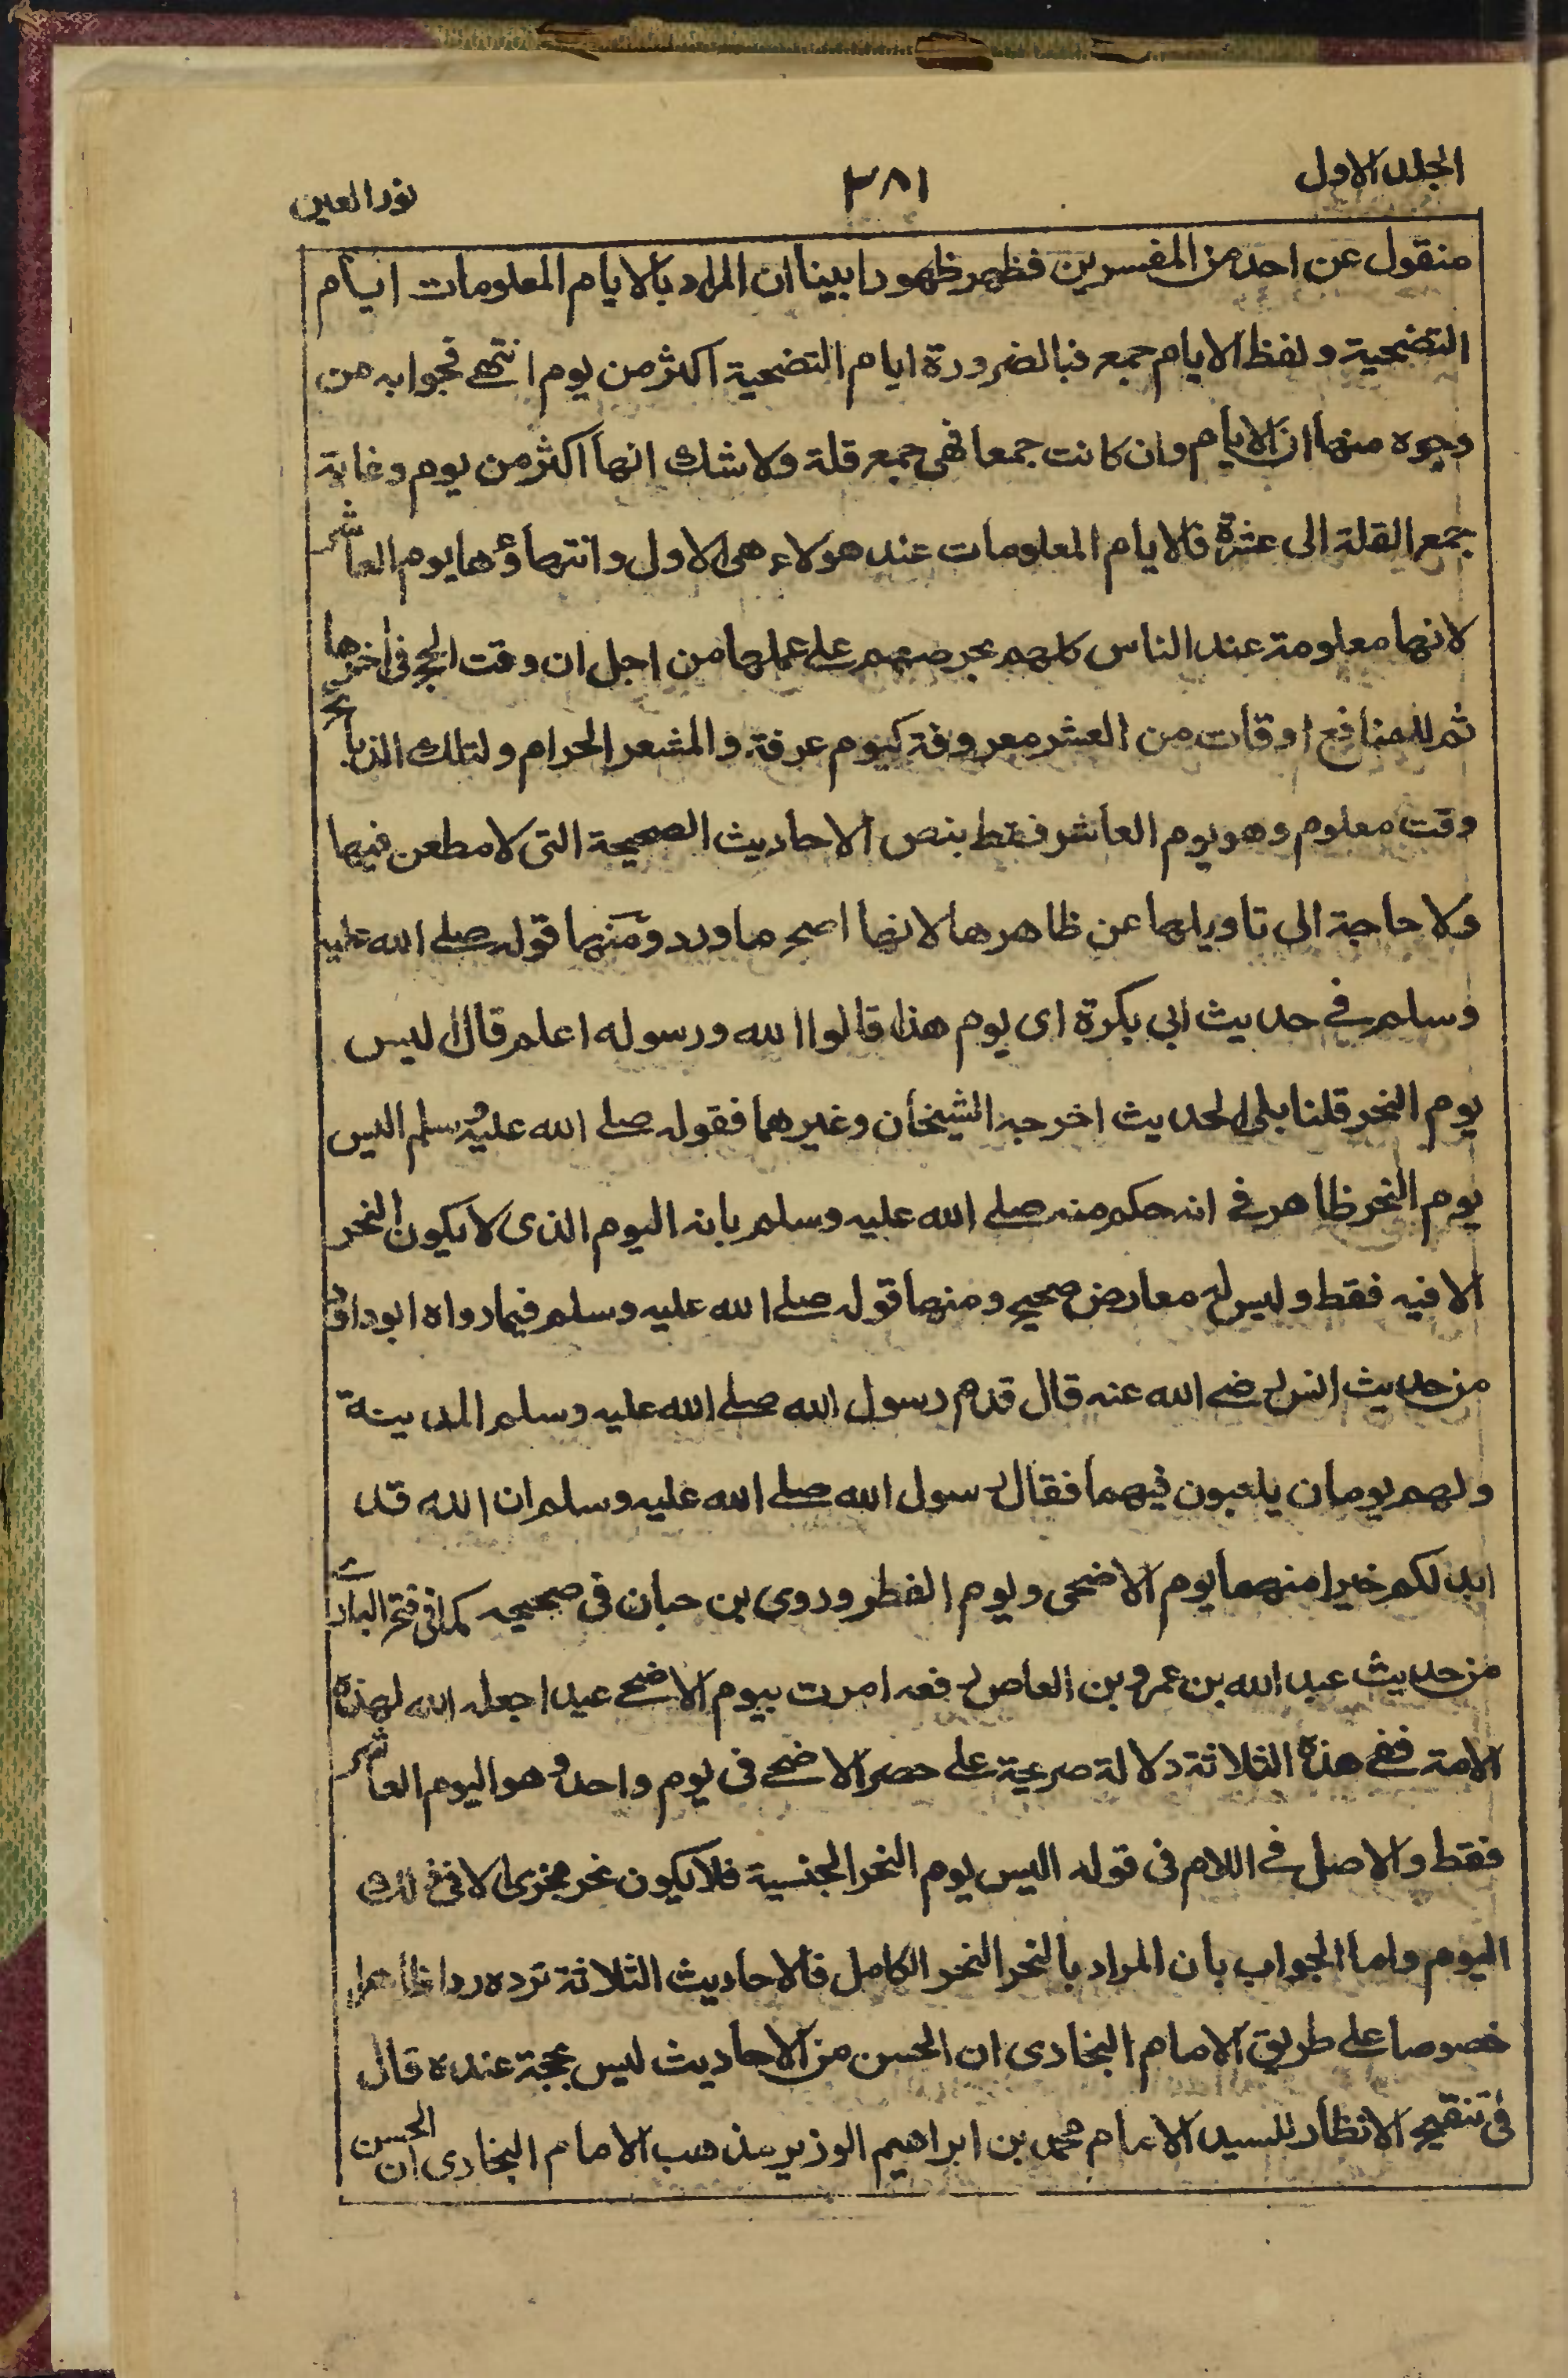 الجلد الاول
٣٨١
نور العين
منقول عن احد من المفسرين فظهر ظهورا بينا ان المراد بالايام المعلومات ايام
التضحية ولفظ الايام جمع فبالضرورة ايام التضحية اكثر من يوم انتهى فجوابه من
وجوه منها ان الايام وان كانت جمعا فهى جمع قلة ولا شك انها اكثر من يوم وغاية
جمع القلة الى عشرة فالايام المعلومات عند هولاء هى الاول وانتهاؤها يوم العاشر
لانها معلومة عند الناس كلهم بحرصهم على عملها من اجل ان وقت الحج فى اخرها
ثم للمنافع اوقات من العشر معروفة كيوم عرفة والمشعر الحرام ولتلك الذبائح
وقت معلوم وهو يوم العاشر فقط بنص الاحاديث الصحيحة التى لا مطعن فيها
ولا حاجة الى تاويلها عن ظاهرها لانها اصح ما ورد ومنها قوله صلے الله عليه
وسلم فے حديث ابى بكرة اى يوم هذا قالوا الله ورسوله اعلم قال اليس
يوم النحر قلنا بلى الحديث اخرجه الشيخان وغيرهما فقوله صلے الله عليه وسلم اليس
يوم النحر ظاهر فے انه حكم منه صلے الله عليه وسلم بانه اليوم الذى لا يكون النحر
الا فيه فقط وليس له معارض صحيح ومنها قوله صلے الله عليه وسلم فيما رواه ابو داؤد
من حديث انس رضے الله عنه قال قدم رسول الله صلے الله عليه وسلم المدينة
ولهم يومان يلعبون فيهما فقال رسول الله صلے الله عليه وسلم ان الله قد
ابدلكم خيرا منهما يوم الاضحى ويوم الفطر وروى بن حبان فى صحيحه كما فى فتح البارے
من حديث عبد الله بن عمرو بن العاص رفعه امرت بيوم الاضحے عيدا جعله الله لهذه
الامة ففے هذه الثلاثة دلالة صريحة على حصر الاضحے فى يوم واحد وهو اليوم العاشر
فقط والاصل فے اللام فى قوله اليس يوم النحر الجنسية فلا يكون نحر مجزى الا فى ذلك
اليوم واما الجواب بان المراد بالنحر النحر الكامل فالاحاديث الثلاثة ترده ردا ظاهرا
خصوصا على طريق الامام البخارى ان الحسن من الاحاديث ليس بحجة عنده قال
فى تنقيح الانظار للسيد الامام محمد بن ابراهيم الوزير مذهب الامام البخارى ان الحسن